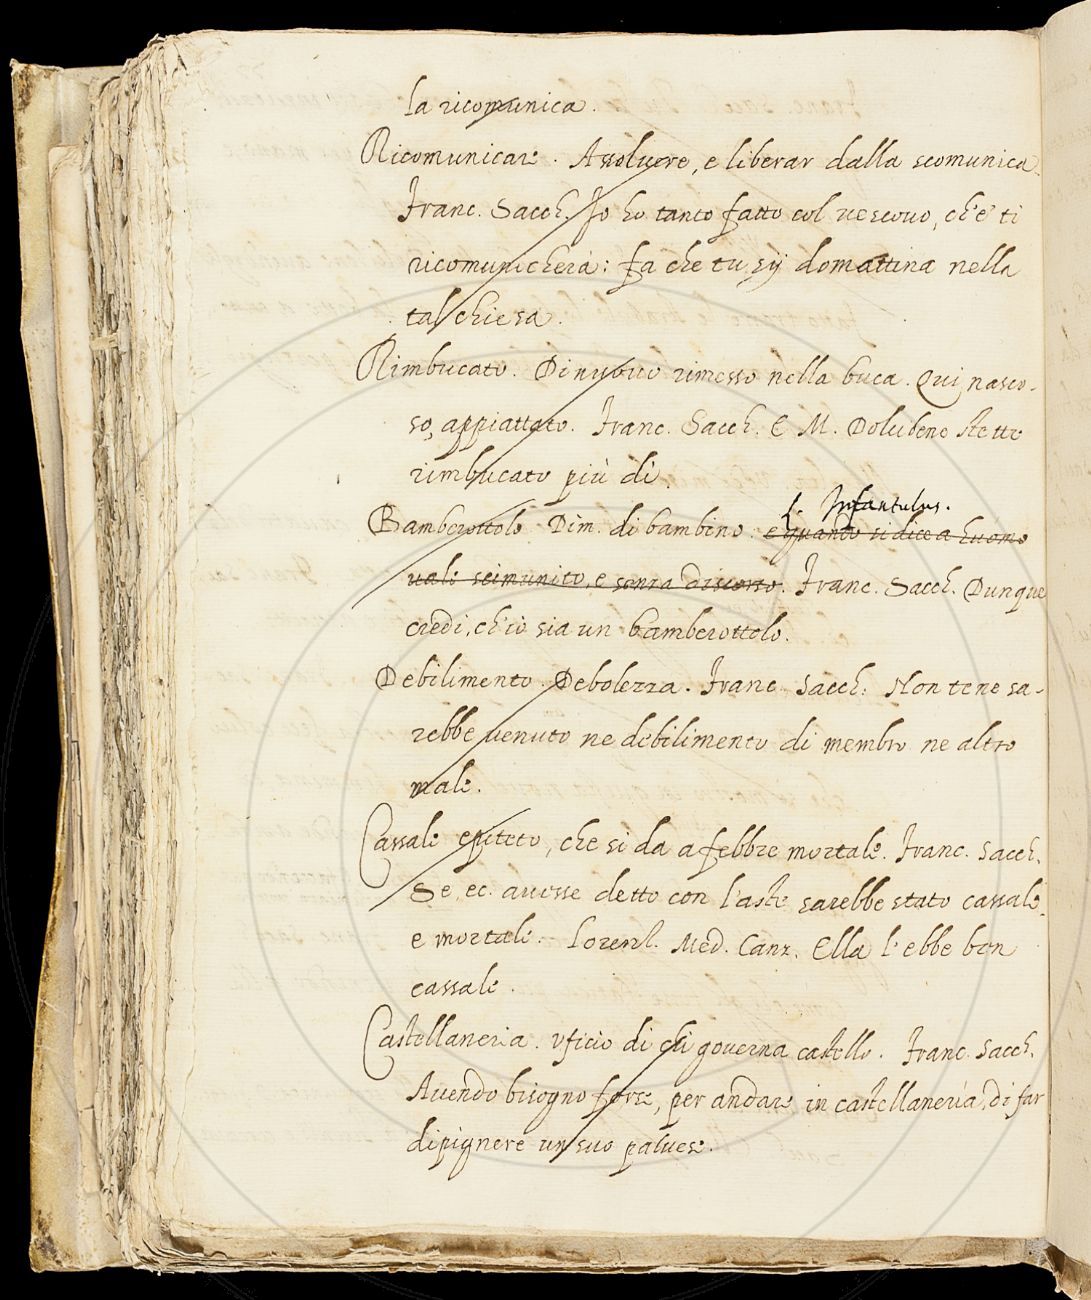 la ricomunica.
Ricomunicare. Assoluere, e liberar dalla scomunica.
Franc. Sacch. Io ho tanto fatto col uescouo, ch'e' ti
ricomunicherà: fa che tu sij domattina nella
tal chiesa.
Rimbucato. Di nuouo rimesso nella buca. Qui nasco-
so, appiattato. Franc. Sacch. E M. Dolcibene stette
rimbucato più dì.
Infantulus.
Bamberottolo. Dim. di bambino. e quanto si dice a huomo
uale scimunito, e senza discorso. Franc. Sacch. Dunque
credi, ch'io sia un bamberottolo.
Debilimento. Debolezza. Franc. Sacch. Non tene sa-
rebbe uenuto ne debilimento di membro ne altro
male.
Cassale epiteto, che si da a febbre mortale. Franc. Sacch.
Se, ec. auesse detto con l'aste sarebbe stato cassale,
e mortale. Lorenz. Med. Canz. Ella l'ebbe ben
cassale.
Castellaneria. Vficio di chi gouerna castello. Franc. Sacch.
Auendo bisogno forse, per andare in castellaneria, di far
dipignere un suo palues.